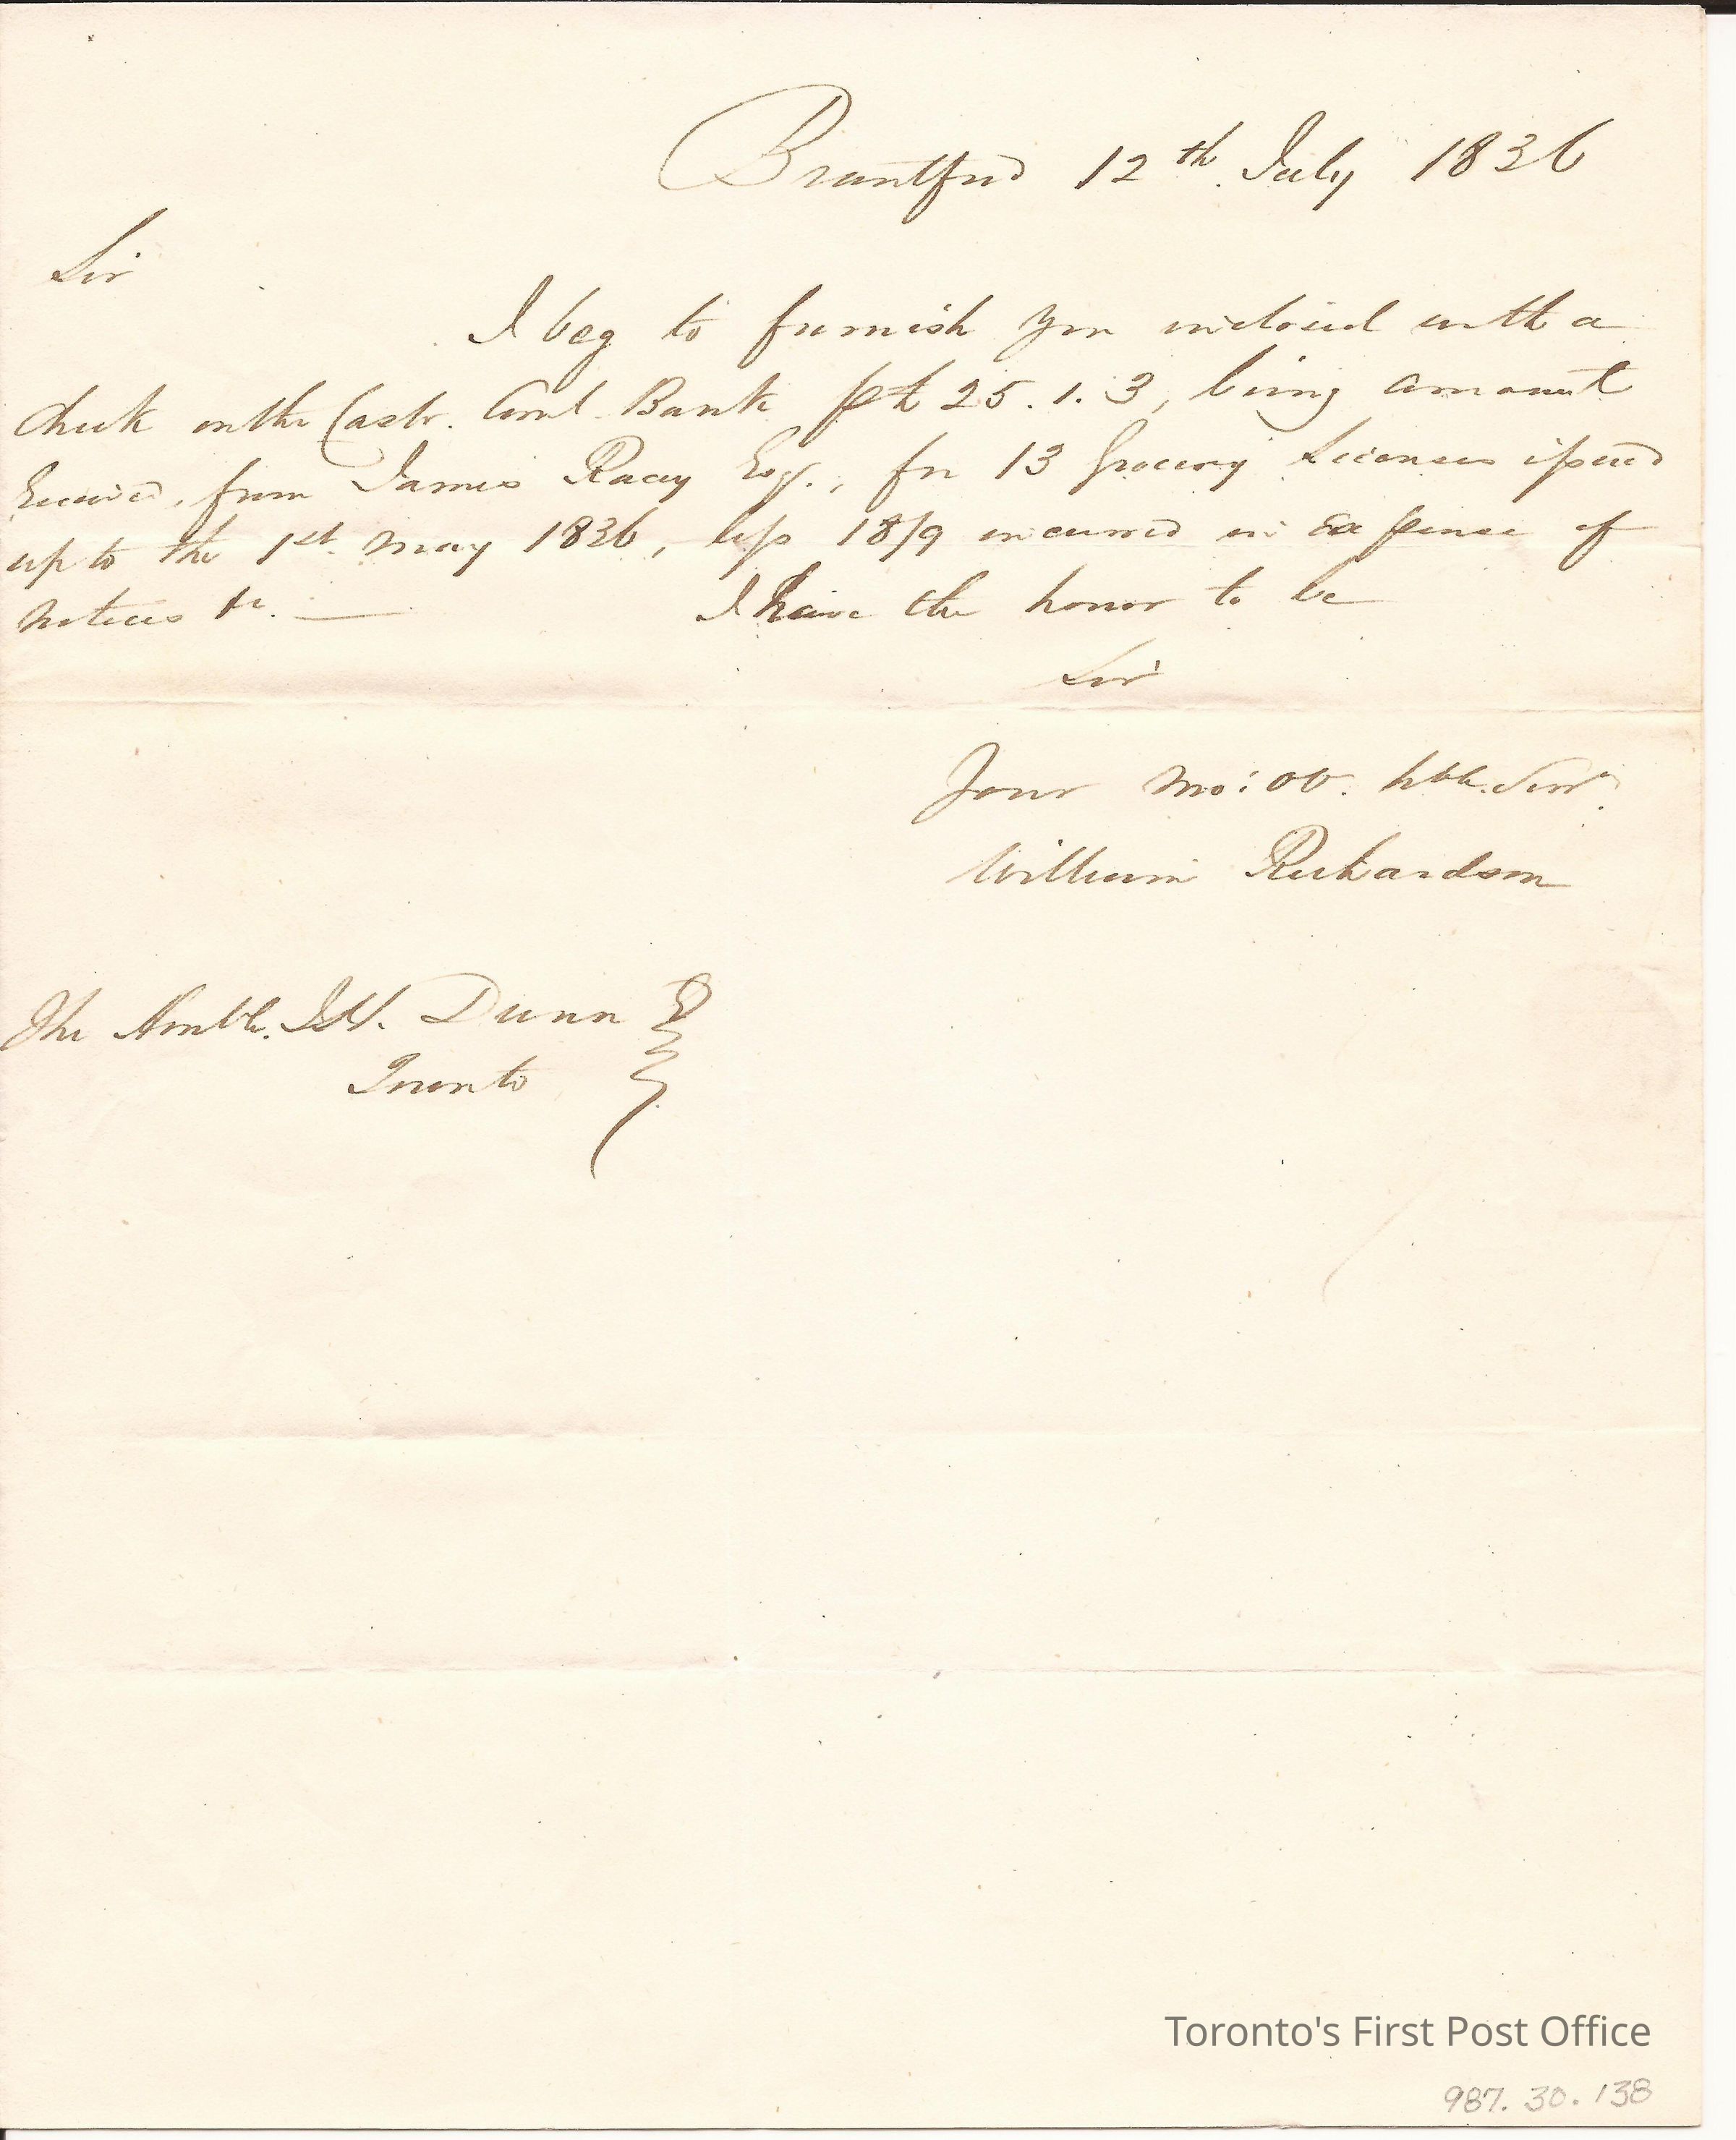 Brantford 12th July 1836
Sir
I beg to furnish you inclosed with a
check on the Bank £25.1.3, being amount
received from James Racey Esqr., for 13 Grocery Licenses issued
up to the 1st May 1836, less 18/9 incurred in Expense of
notices &c. — I have the honor to be
Sir
Your mo: ob. hble. Servt.
William Richardson
The Honble. J.H. Dunn
Toronto
Toronto's First Post Office
987.30.138